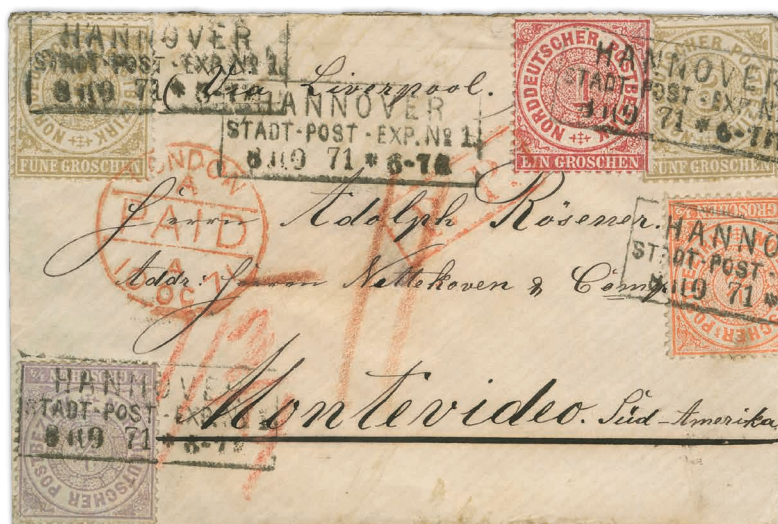 HANNOVER
STADT-POST-EXP. Nº 1
71 * 6-7
FÜNF GROSCHEN
Via Liverpool.
HANNOVER
STADT-POST-EXP. Nº 1
71 * 6-7
NORDDEUTSCHER POSTBEZIRK
1
EIN GROSCHEN
HANNOVER
STADT-POST-EXP. Nº 1
71 * 6-7
FÜNF GROSCHEN
LONDON
A
PAID
OC 71
Herrn Adolph Rösener.
Addr: Herren Nettehoven & Comp
HANNO
STADT-POST-
71 *
Montevideo. Süd-Amerika
HANNOVER
STADT-POST-EXP. Nº 1
71 * 6-7